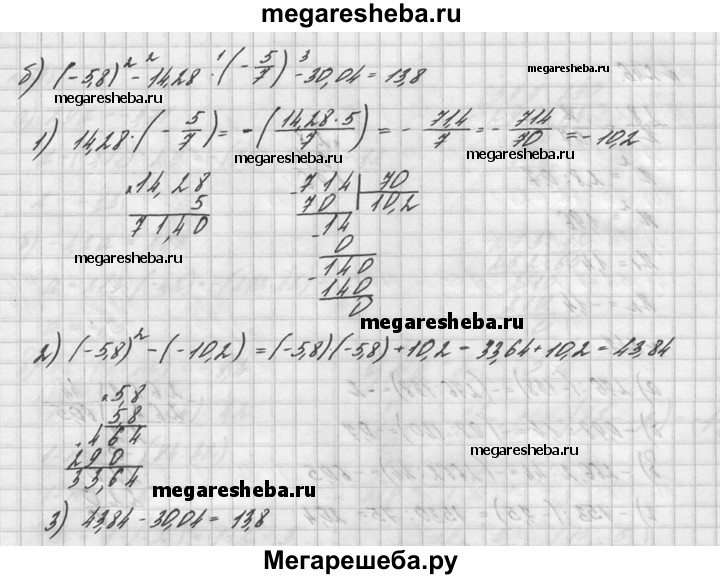 megaresheba.ru
б) (-5,8)² - 14,28 · (-5/7) - 30,04 = 13,8
megaresheba.ru
1) 14,28 · (-5/7) = -(14,28·5/7) = - 71,4/7 = - 714/70 = - 10,2
megaresheba.ru
megaresheba.ru
× 14,28
5
71,40
megaresheba.ru
- 714 | 70
70 | 10,2
- 14
0
- 140
140
0
megaresheba.ru
2) (-5,8)² - (-10,2) = (-5,8)(-5,8) + 10,2 = 33,64 + 10,2 = 43,84
× 5,8
5,8
+ 464
290
33,64
megaresheba.ru
megaresheba.ru
3) 43,84 - 30,04 = 13,8
Мегарешеба.ру